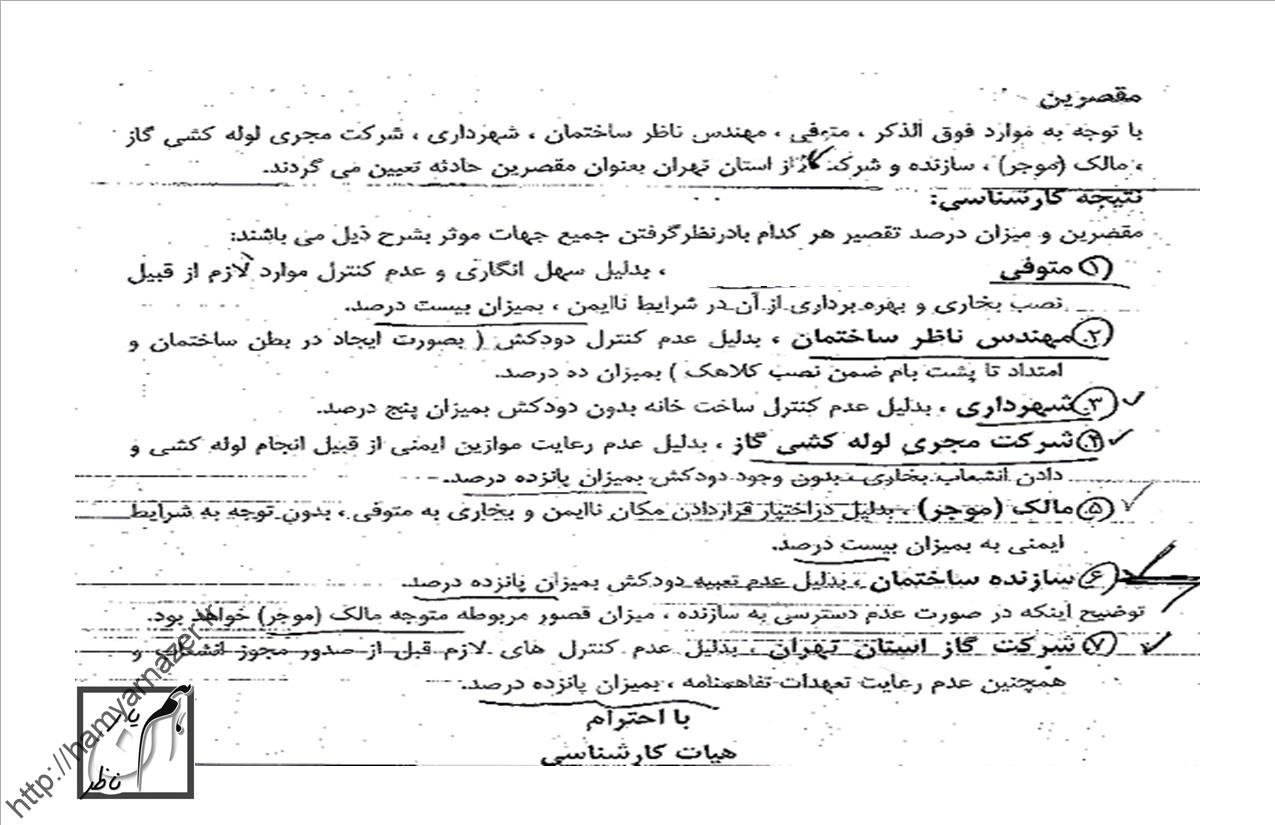 مقصرین
با توجه به موارد فوق الذکر ، متوفی ، مهندس ناظر ساختمان ، شهرداری ، شرکت مجری لوله کشی گاز
، مالک (موجر) ، سازنده و شرکت گاز استان تهران بعنوان مقصرین حادثه تعیین می گردند.
نتیجه کارشناسی:
مقصرین و میزان درصد تقصیر هر کدام بادرنظرگرفتن جمیع جهات موثر بشرح ذیل می باشند:
۱) متوفی ، بدلیل سهل انگاری و عدم کنترل موارد لازم از قبیل
نصب بخاری و بهره برداری از آن در شرایط ناایمن ، بمیزان بیست درصد.
۲. مهندس ناظر ساختمان ، بدلیل عدم کنترل دودکش ( بصورت ایجاد در بطن ساختمان و
امتداد تا پشت بام ضمن نصب کلاهک ) بمیزان ده درصد.
۳. شهرداری ، بدلیل عدم کنترل ساخت خانه بدون دودکش بمیزان پنج درصد.
۴) شرکت مجری لوله کشی گاز ، بدلیل عدم رعایت موازین ایمنی از قبیل انجام لوله کشی و
دادن انشعاب بخاری بدون وجود دودکش بمیزان پانزده درصد.
۵) مالک (موجر) ، بدلیل دراختیار قراردادن مکان ناایمن و بخاری به متوفی ، بدون توجه به شرایط
ایمنی به بمیزان بیست درصد.
۶) سازنده ساختمان ، بدلیل عدم تعبیه دودکش بمیزان پانزده درصد.
توضیح اینکه در صورت عدم دسترسی به سازنده ، میزان قصور مربوطه متوجه مالک (موجر) خواهد بود.
۷) شرکت گاز استان تهران ، بدلیل عدم کنترل های لازم قبل از صدور مجوز انشعاب و
همچنین عدم رعایت تعهدات تفاهمنامه ، بمیزان پانزده درصد.
با احترام
هیات کارشناسی
همیاران ناظر